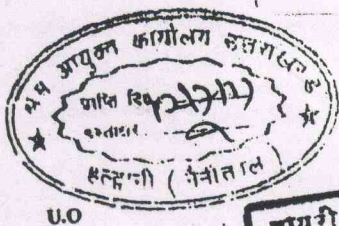 श्रम आयुक्त कार्यालय उत्तराखण्ड
प्राप्ति
हस्ताक्षर
हल्द्वानी ( नैनीताल )
U.O